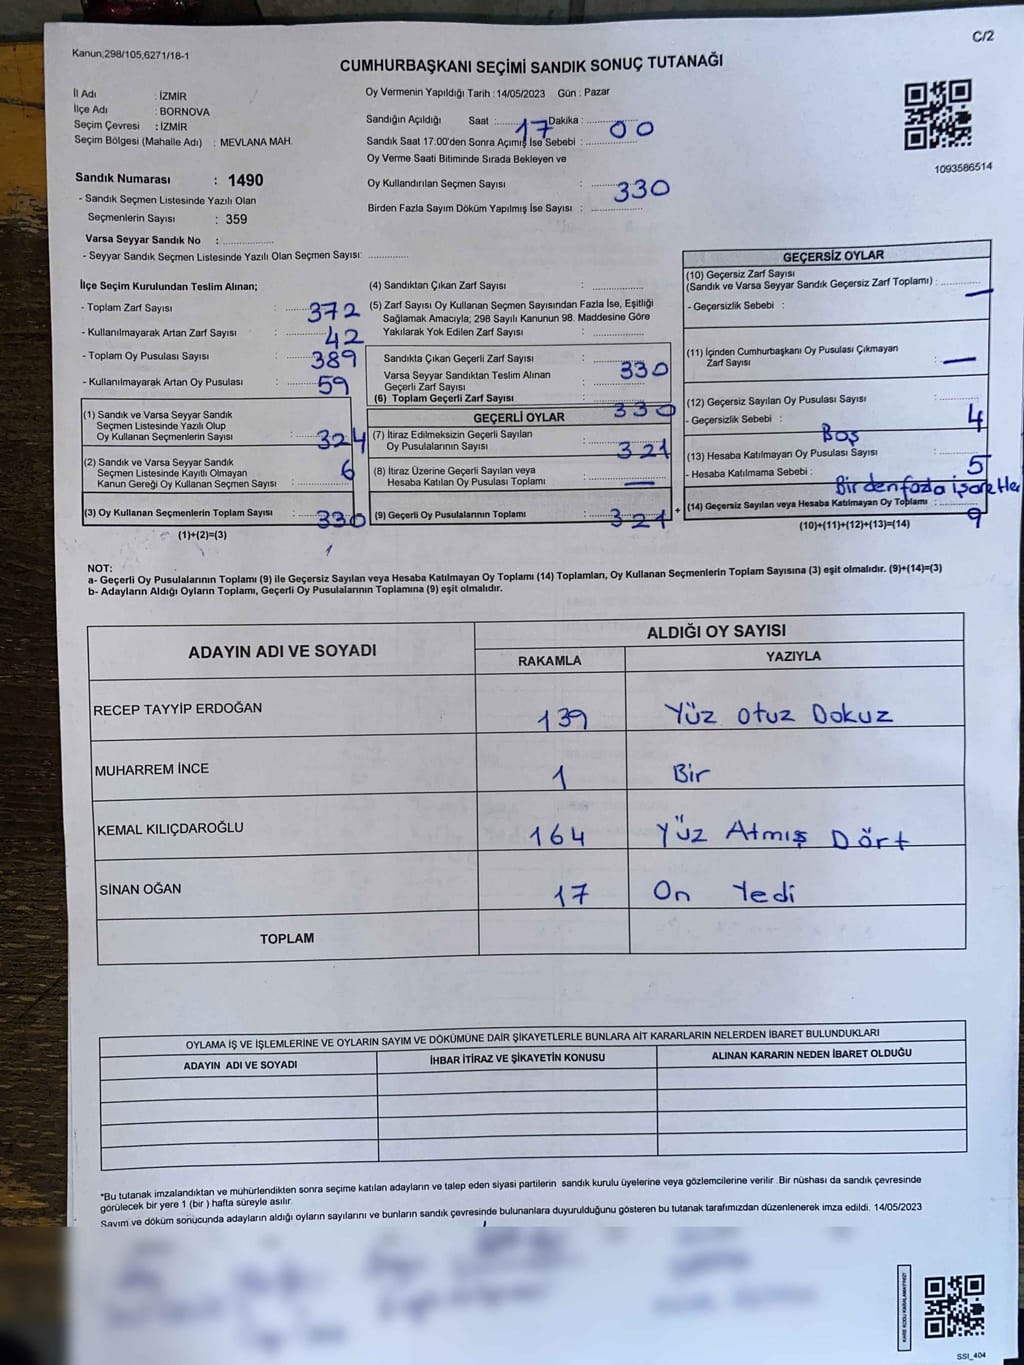 C/2
Kanun:298/105,6271/18-1
CUMHURBAŞKANI SEÇİMİ SANDIK SONUÇ TUTANAĞI
İl Adı : İZMİR
İlçe Adı : BORNOVA
Seçim Çevresi : İZMİR
Seçim Bölgesi (Mahalle Adı) : MEVLANA MAH.
Sandık Numarası : 1490
- Sandık Seçmen Listesinde Yazılı Olan
Seçmenlerin Sayısı : 359
Varsa Seyyar Sandık No : ................
- Seyyar Sandık Seçmen Listesinde Yazılı Olan Seçmen Sayısı: ............
Oy Vermenin Yapıldığı Tarih : 14/05/2023 Gün : Pazar
Sandığın Açıldığı Saat : 17 Dakika : 00
Sandık Saat 17:00'den Sonra Açımış İse Sebebi :
Oy Verme Saati Bitiminde Sırada Bekleyen ve
Oy Kullandırılan Seçmen Sayısı : 330
Birden Fazla Sayım Döküm Yapılmış İse Sayısı :
1093586514
İlçe Seçim Kurulundan Teslim Alınan;
- Toplam Zarf Sayısı : 372
- Kullanılmayarak Artan Zarf Sayısı : 42
- Toplam Oy Pusulası Sayısı : 389
- Kullanılmayarak Artan Oy Pusulası : 59
(1) Sandık ve Varsa Seyyar Sandık
Seçmen Listesinde Yazılı Olup
Oy Kullanan Seçmenlerin Sayısı : 324
(2) Sandık ve Varsa Seyyar Sandık
Seçmen Listesinde Kayıtlı Olmayan
Kanun Gereği Oy Kullanan Seçmen Sayısı : 6
(3) Oy Kullanan Seçmenlerin Toplam Sayısı : 330
(1)+(2)=(3)
(4) Sandıktan Çıkan Zarf Sayısı :
(5) Zarf Sayısı Oy Kullanan Seçmen Sayısından Fazla İse, Eşitliği
Sağlamak Amacıyla; 298 Sayılı Kanunun 98. Maddesine Göre
Yakılarak Yok Edilen Zarf Sayısı :
Sandıkta Çıkan Geçerli Zarf Sayısı : 330
Varsa Seyyar Sandıktan Teslim Alınan
Geçerli Zarf Sayısı :
(6) Toplam Geçerli Zarf Sayısı : 330
GEÇERLİ OYLAR
(7) İtiraz Edilmeksizin Geçerli Sayılan
Oy Pusulalarının Sayısı : 321
(8) İtiraz Üzerine Geçerli Sayılan veya
Hesaba Katılan Oy Pusulası Toplamı : —
(9) Geçerli Oy Pusulalarının Toplamı : 321
+
GEÇERSİZ OYLAR
(10) Geçersiz Zarf Sayısı
(Sandık ve Varsa Seyyar Sandık Geçersiz Zarf Toplamı) : —
- Geçersizlik Sebebi :
(11) İçinden Cumhurbaşkanı Oy Pusulası Çıkmayan
Zarf Sayısı : —
(12) Geçersiz Sayılan Oy Pusulası Sayısı : 4
- Geçersizlik Sebebi : Boş
(13) Hesaba Katılmayan Oy Pusulası Sayısı : 5
- Hesaba Katılmama Sebebi : Birden fazla işaretler
(14) Geçersiz Sayılan veya Hesaba Katılmayan Oy Toplamı : 9
(10)+(11)+(12)+(13)=(14)
NOT:
a- Geçerli Oy Pusulalarının Toplamı (9) ile Geçersiz Sayılan veya Hesaba Katılmayan Oy Toplamı (14) Toplamları, Oy Kullanan Seçmenlerin Toplam Sayısına (3) eşit olmalıdır. (9)+(14)=(3)
b- Adayların Aldığı Oyların Toplamı, Geçerli Oy Pusulalarının Toplamına (9) eşit olmalıdır.
ADAYIN ADI VE SOYADI ALDIĞI OY SAYISI
RAKAMLA YAZIYLA
RECEP TAYYİP ERDOĞAN 139 Yüz Otuz Dokuz
MUHARREM İNCE 1 Bir
KEMAL KILIÇDAROĞLU 164 Yüz Atmış Dört
SİNAN OĞAN 17 On Yedi
TOPLAM
OYLAMA İŞ VE İŞLEMLERİNE VE OYLARIN SAYIM VE DÖKÜMÜNE DAİR ŞİKAYETLERLE BUNLARA AİT KARARLARIN NELERDEN İBARET BULUNDUKLARI
ADAYIN ADI VE SOYADI İHBAR İTİRAZ VE ŞİKAYETİN KONUSU ALINAN KARARIN NEDEN İBARET OLDUĞU
*Bu tutanak imzalandıktan ve mühürlendikten sonra seçime katılan adayların ve talep eden siyasi partilerin sandık kurulu üyelerine veya gözlemcilerine verilir .Bir nüshası da sandık çevresinde
görülecek bir yere 1 (bir ) hafta süreyle asılır.
Sayım ve döküm sonucunda adayların aldığı oyların sayılarını ve bunların sandık çevresinde bulunanlara duyurulduğunu gösteren bu tutanak tarafımızdan düzenlenerek imza edildi. 14/05/2023
SSI_404